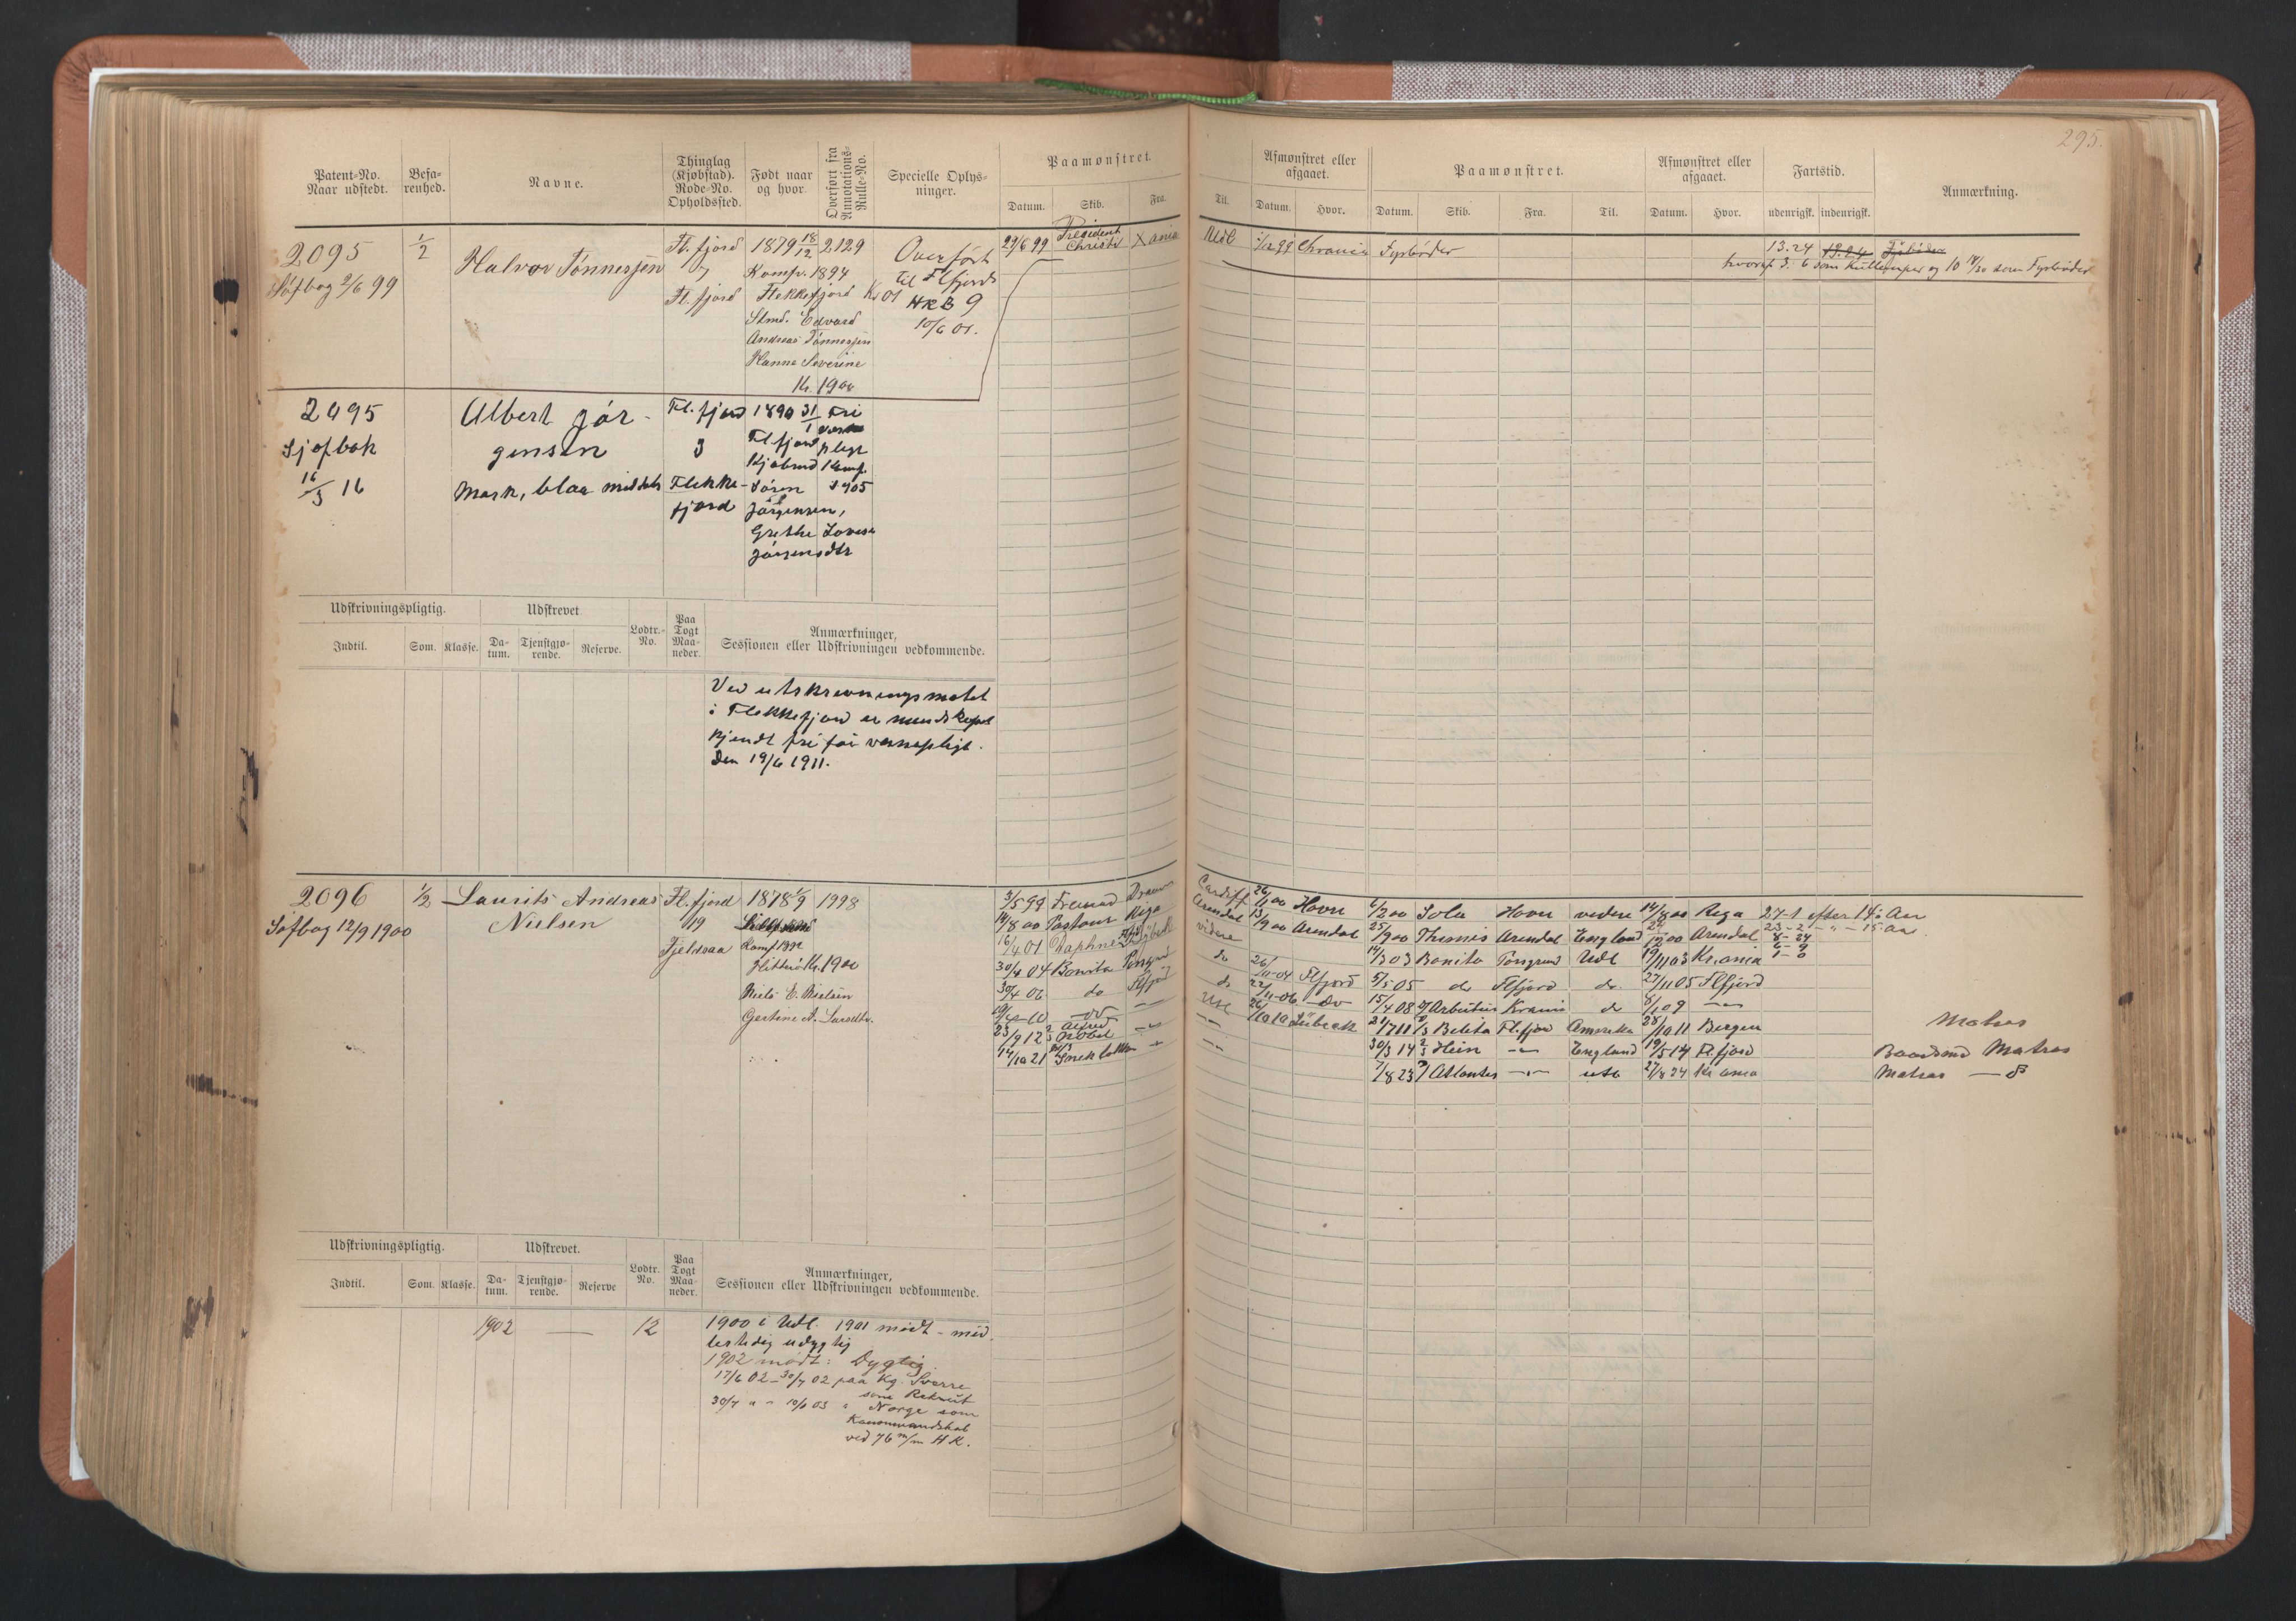 295.
Patent-No. Naar udstedt.
Befa-renhed.
Navne.
Thinglag (Kjøbstad). Rode-No. Opholdssted.
Født naar og hvor.
Overført fra Annotations-Rulle-No.
Specielle Oplys-ninger.
Paamønstret
Datum. Skib. Fra.
Til.
Afmønstret eller afgaaet.
Datum. Hvor.
Paamønstret.
Datum. Skib. Fra. Til.
Afmønstret eller afgaaet.
Datum. Hvor.
Fartstid.
udenrigsk. indenrigsk.
Anmærkning.
2095
Søfbog 2/6 99
1/2
Halvor Tønnessen
Fl.fjord
7
Fl.fjord
1879 18/12 2129
Konf. 1894
Flekkefjord
Stmd. Edvard
Andreas Tønnessen
Hanne Severine
Kr. 1900
Overført
til Flfjords
HRB 9
10/6 01.
29/6 99 President Christi Xania
Udl Chrania Fyrbøder
13.24
hvoraf 3. 6 som Kullemper og 10 14/30 som Fyrbøder
2095
Sjøfbok
16/3 16
Albert Jør-
gensen
Mørk, blaa middels
Fl.fjord
3
Flekke-
fjord
1890 31/1 Fri
Fl.fjord plegt
Kjøbmd Konf.
Søren 1905
Jørgensen,
Grethe Lovise
Jørgensdtr
Udskrivningspligtig.
Udskrevet.
Lodtr.-No.
Paa Togt Maa-neder.
Anmærkninger,
Sessionen eller Udskrivningen vedkommende.
Indtil. Som. Klasse. Da-tum. Tjenstgjø-rende. Reserve.
Ved utskrivningsmøtet
i Flekkefjord er
kjendt fri for vernepligt.
den 19/6 1911.
2096
Søfbog 12/9 1900
1/2
Laurits Andreas
Nielsen
Fl.fjord
19
Fjeldsaa
1878 1/9 1998
Konf 1892
Hitterø Kr. 1900
Niels E. Nielsen
Gertine A. Larsdtr.
3/5 99 Fremad Dram
14/8 00 Pastour Riga
16/4 01 Daphne
30/4 04 Bonita
30/4 06 do Flfjord
23/9 12 Alfred Nobel
14/10 21
Cardiff 26/1 00 Havre
Arendal 13/9 00 Arendal
videre
do 26/11-04 Flfjord
do 22/11-06 do
Udl 26/10 10 Lübeck
6/2 00 Sola Havre videre 14/8 00 Riga 27-1 efter 14 Aar
25/9 00 Themis Arendal England 22/12 00 Arendal 23-2 - " - 15 Aar
8-24
14/3 03 Bonita Porsgrund Udl 19/11 03 Kr.ania 6-9
1-0
5/5 05 do Flfjord do 27/11 05 Flfjord
15/4 08 Arbutus Krania do 8/1 09 — " —
21/7 11 Belita Fl.fjord Amerika 28/10 11 Bergen Matros
30/3 14 Hein — " — England 19/5 14 Fl.fjord Baadsmd Matros
7/8 23 Atlantis — " — utl 27/8 24 Kr ania Matros
Udskrivningspligtig.
Udskrevet.
Lodtr. No.
Paa Togt Maa-neder.
Anmærkninger,
Sessionen eller Udskrivningen vedkommende.
Indtil. Som. Klasse. Da-tum. Tjenstgjø-rende. Reserve
1902 — 12
1900 i Udl. 1901 mødt - mid-
lertidig udygtig
1902 mødt: Dygtig.
17/6 02 - 30/7 02 paa Kg. Sverre
som Rekrut
30/7 " - 10/6 03 " Norge som
Kanonmandskab
ved 76 m/m H K.